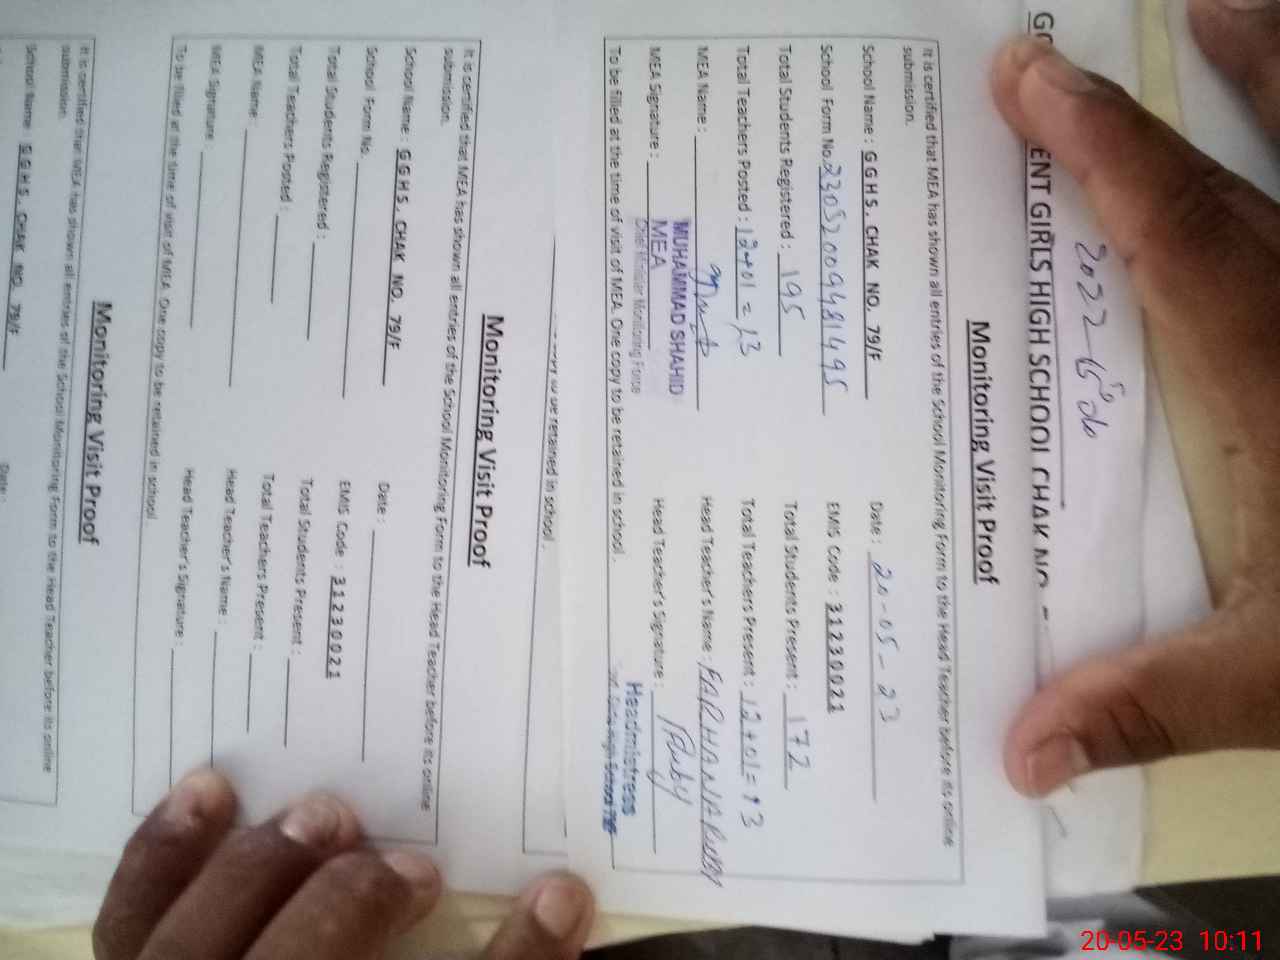 GIRLS HIGH SCHOOL CHAK NO.
Monitoring Visit Proof
It is certified that MEA has shown all entries of the School Monitoring Form to the Head Teacher before its online
submission.
School Name : GGHS. CHAK NO. 79/F Date : 20-05-23
School Form No. 23052009481495 EMIS Code : 31230021
Total Students Registered : 195 Total Students Present : 172
Total Teachers Posted : 12+01 = 13 Total Teachers Present : 12+01 = 13
MEA Name : Head Teacher's Name : FARHANA RUBY
MUHAMMAD SHAHID
MEA
Chief Minister Monitoring Force
MEA Signature : Head Teacher's Signature : Ruby
Headmistress
To be filled at the time of visit of MEA. One copy to be retained in school.
copy to be retained in school.
Monitoring Visit Proof
It is certified that MEA has shown all entries of the School Monitoring Form to the Head Teacher before its online
submission.
School Name : GGHS. CHAK NO. 79/F Date :
School Form No. EMIS Code : 31230021
Total Students Registered : Total Students Present :
Total Teachers Posted : Total Teachers Present :
MEA Name : Head Teacher's Name :
MEA Signature : Head Teacher's Signature :
To be filled at the time of visit of MEA. One copy to be retained in school
Monitoring Visit Proof
It is certified that MEA has shown all entries of the School Monitoring Form to the Head Teacher before its online
submission.
School Name : GGHS. CHAK NO. 79/F Date :
20-05-23 10:11